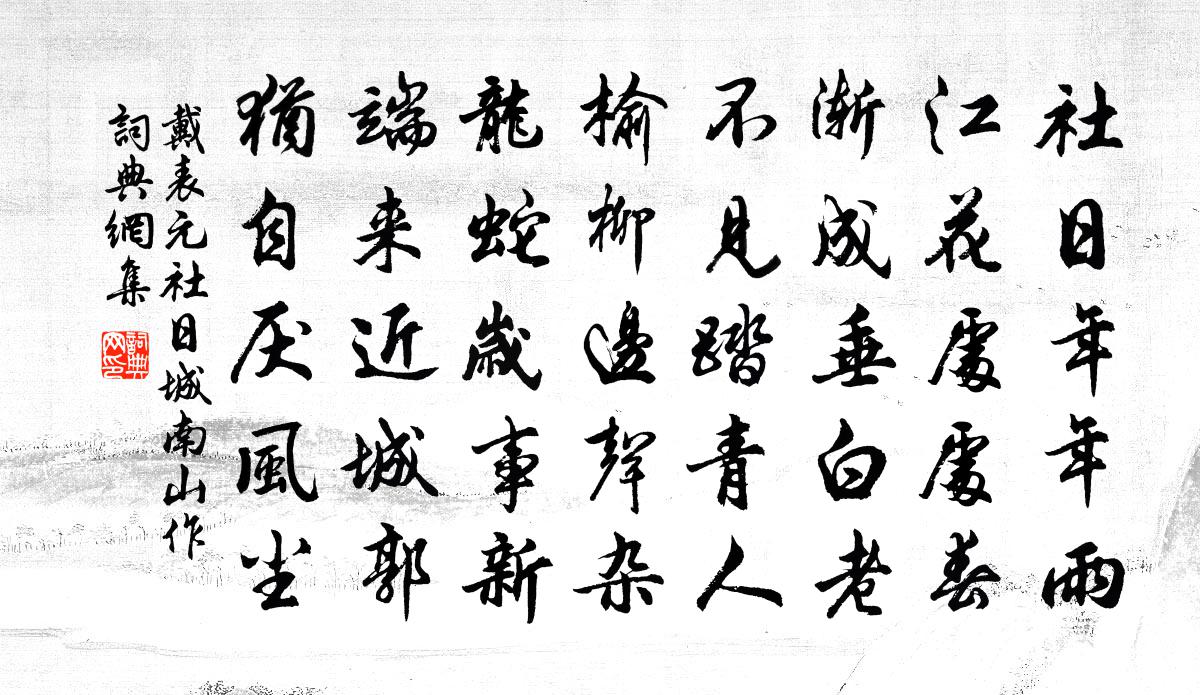 社日年年雨
江花處處春
漸成垂白老
不見踏青人
榆柳邊聲杂
龍蛇歲事新
端来近城郭
猶自厌風尘
戴表元社日城南山作
詞典網集
詞典